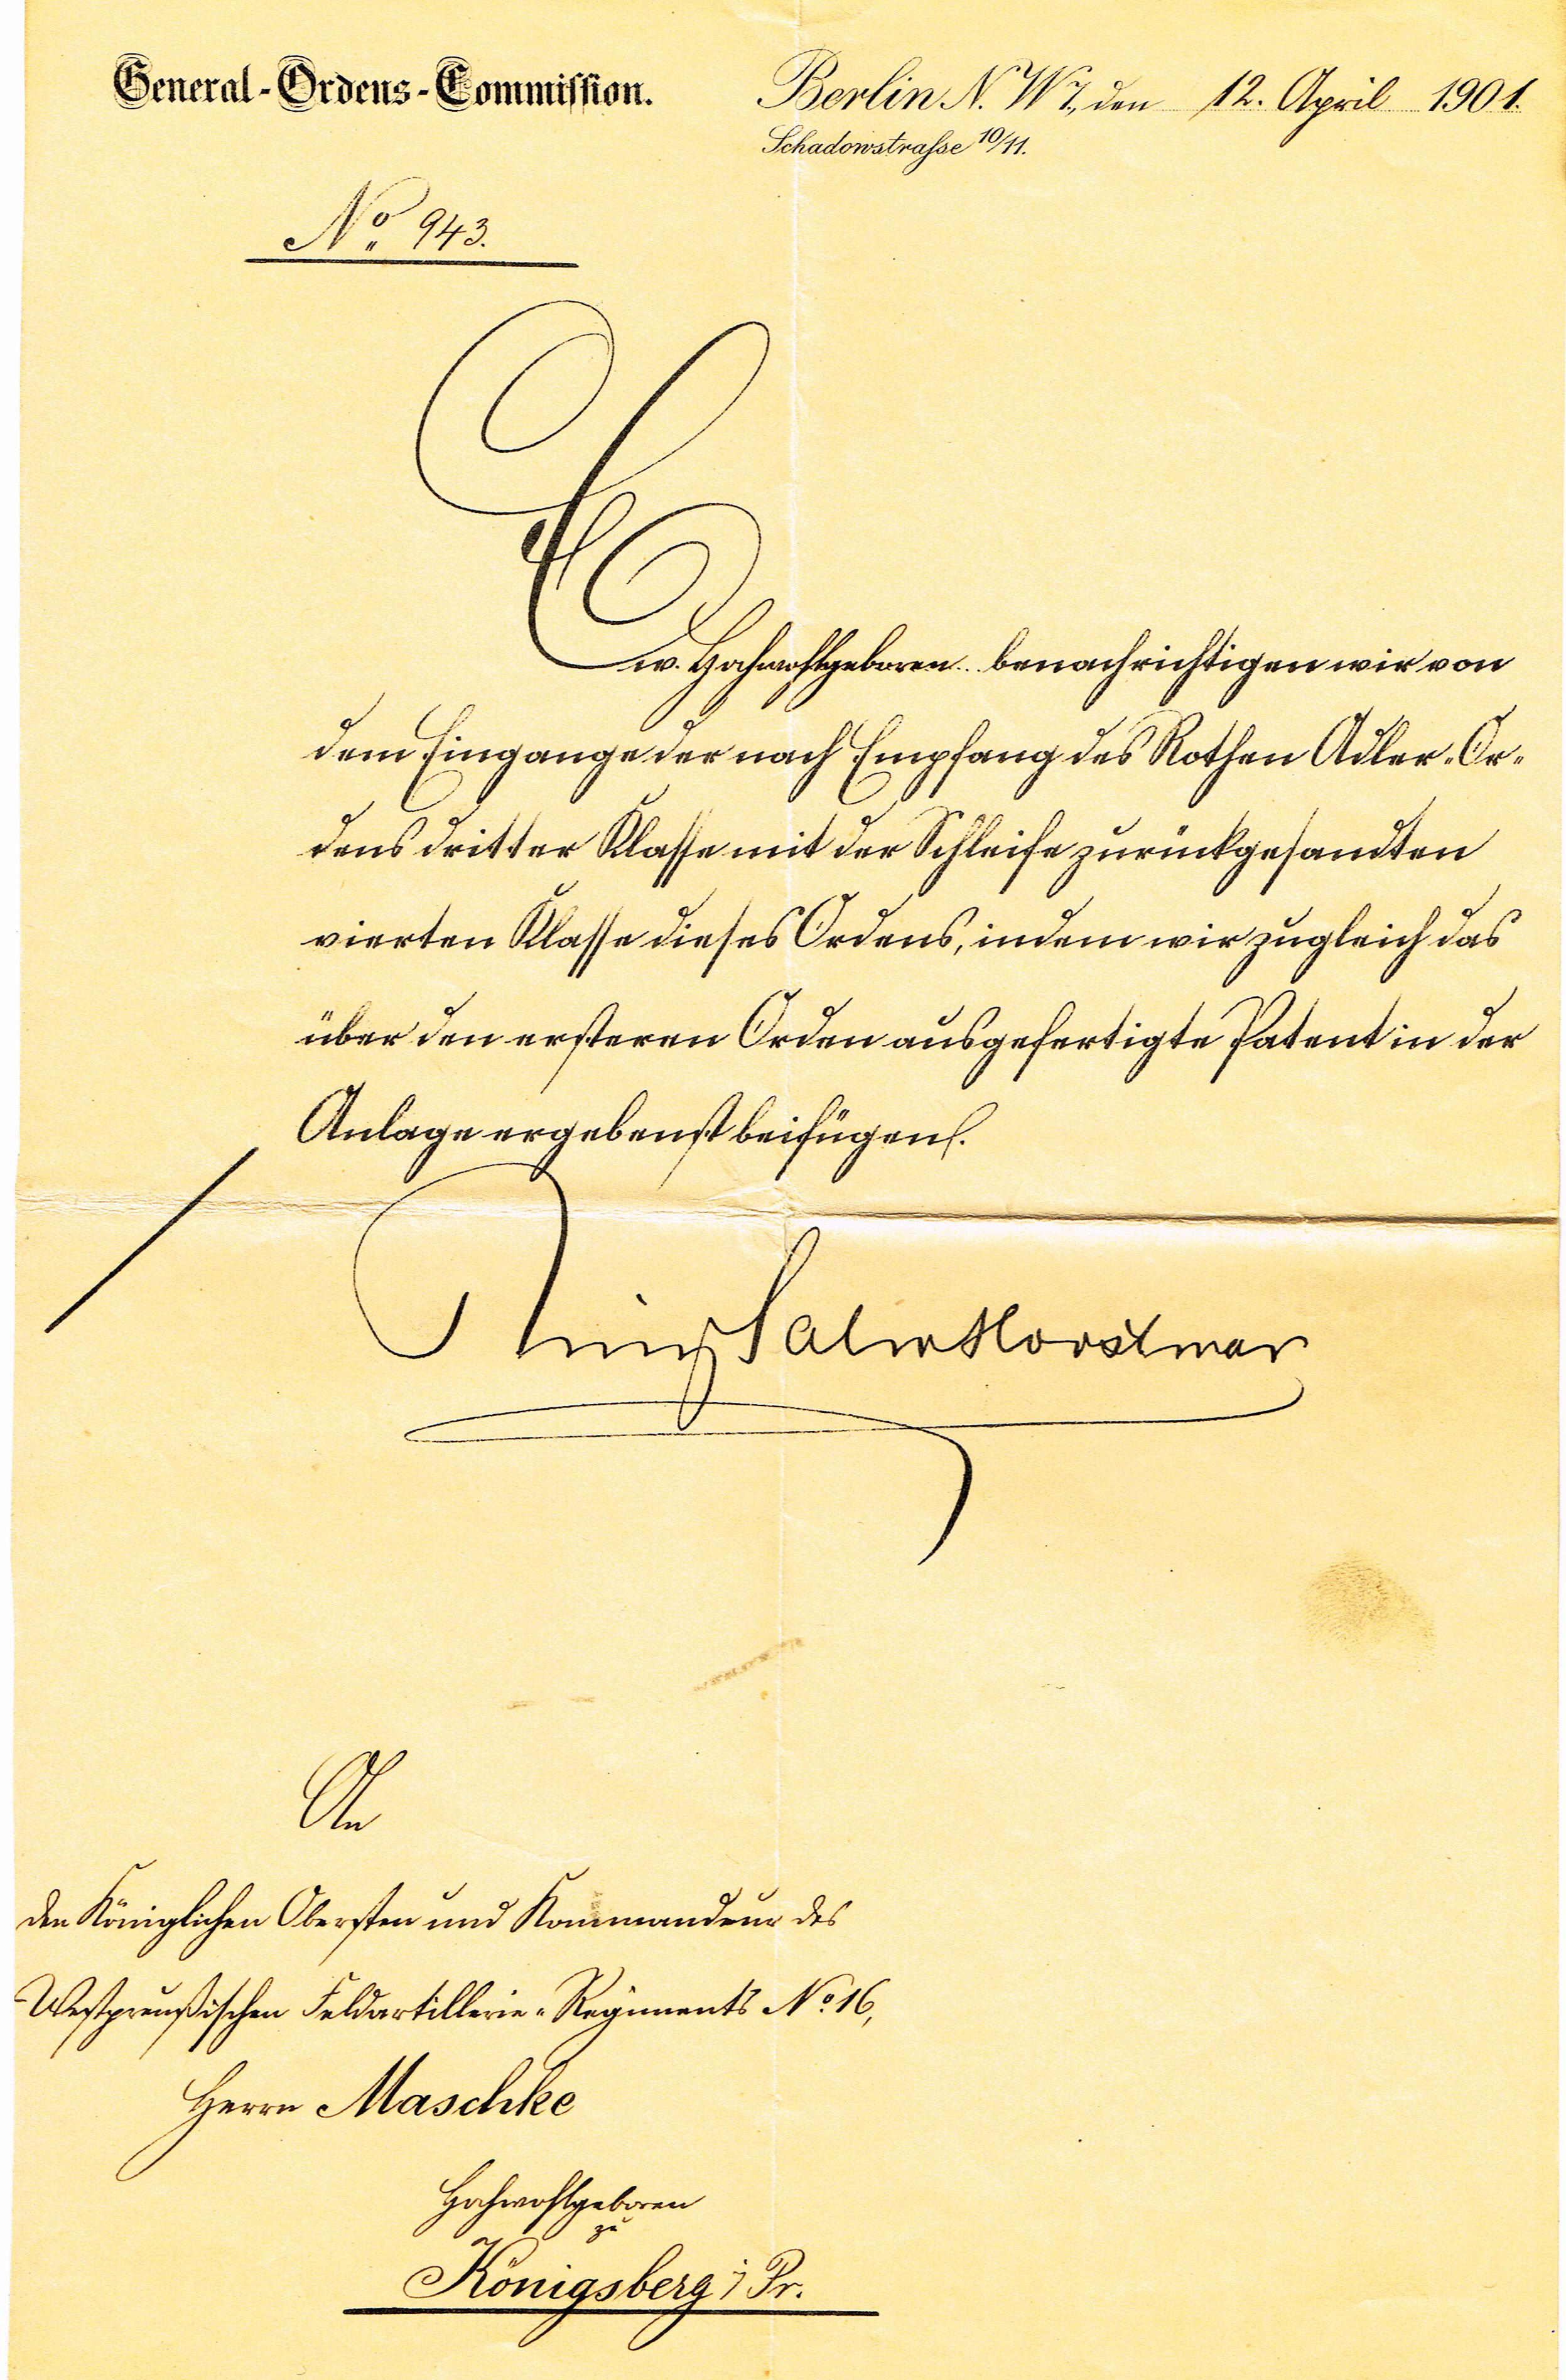 General-Ordens-Commission.
Berlin N. W 7., den 12. April 1901.
Schadowstrasse 10/11.
No. 943.
Ew. Hochwohlgeboren benachrichtigen wir von
dem Eingange der nach Empfang des Rothen Adler-Or-
dens dritter Klasse mit der Schleife zurückgesandten
vierten Klasse dieses Ordens, indem wir zugleich das
über den ersteren Orden ausgefertigte Patent in der
Anlage ergebenst beifügen.
Prinz Salm Horstmar
An
den Königlichen Obersten und Kommandeur des
Westpreußischen Feldartillerie-Regiments No. 16,
Herrn Maschke
Hochwohlgeboren
zu
Königsberg i Pr.